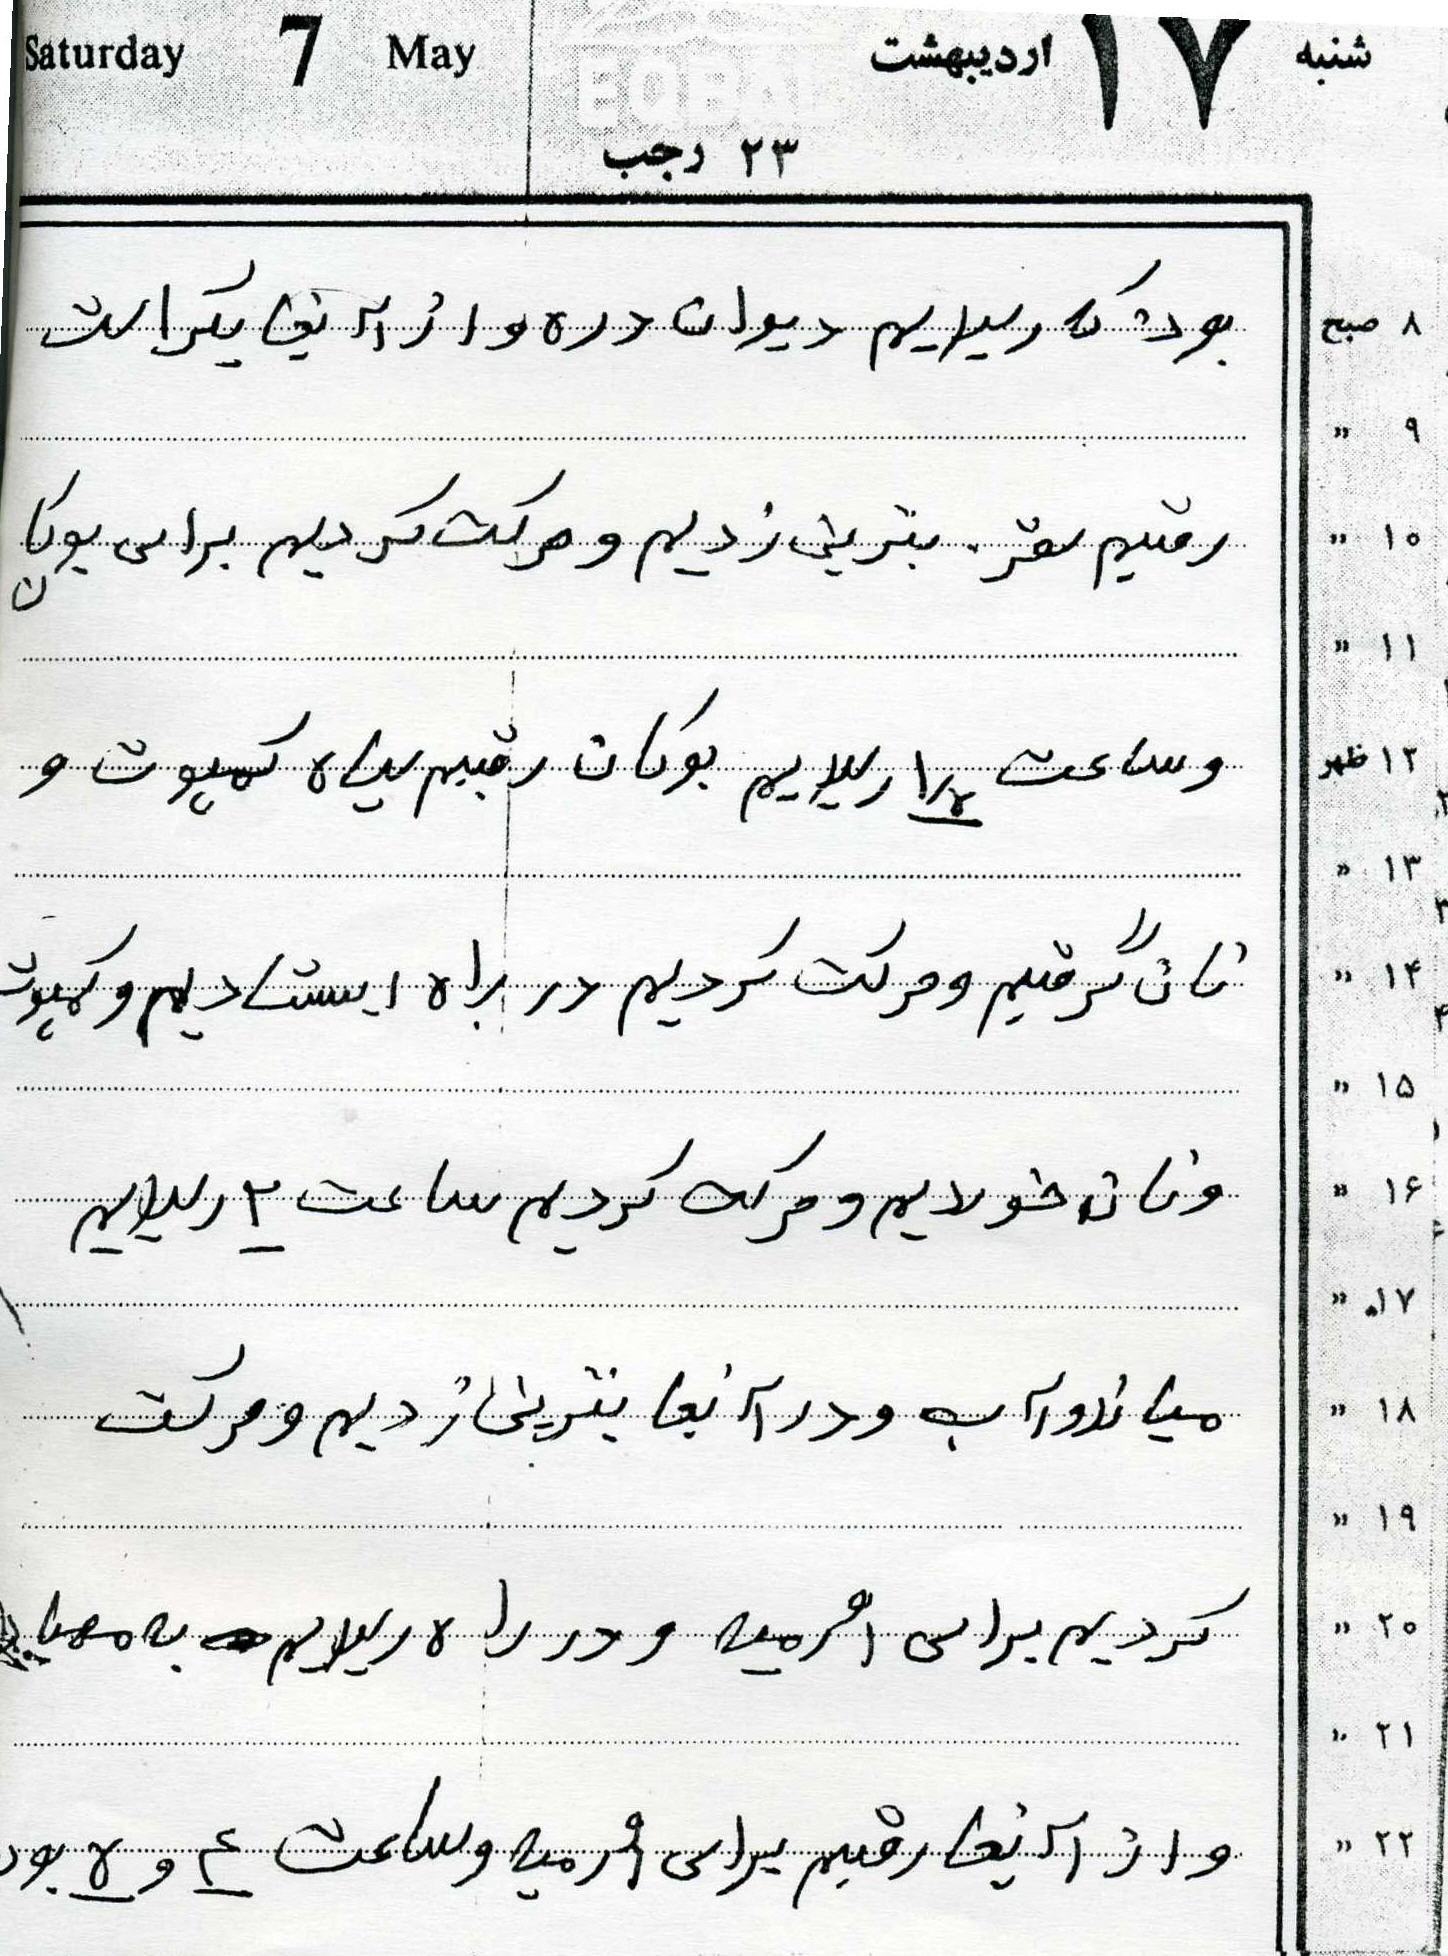 شنبه ۱۷ اردیبهشت May 7 Saturday
EQBAL
۲۳ رجب
۸ صبح بود که رسیدیم دیوان دره و از آنجا یکراست
۹ »
۱۰ » رفتیم سقز. بنزین زدیم و حرکت کردیم برای بوکان
۱۱ »
۱۲ ظهر و ساعت رسیدیم بوکان رفتیم سپاه کمپوت و
۱۳ »
۱۴ » نان گرفتیم و حرکت کردیم در راه ایستادیم و کمپوت
۱۵ »
۱۶ » و نان خوردیم و حرکت کردیم ساعت ۲ رسیدیم
۱۷ »
۱۸ » میاندوآب و در آنجا بنزین زدیم و حرکت
۱۹ »
۲۰ » کردیم برای ارومیه و در راه رسیدیم به
۲۱ »
۲۲ » و از آنجا رفتیم برای ارومیه و ساعت ۴ و ۷ بود